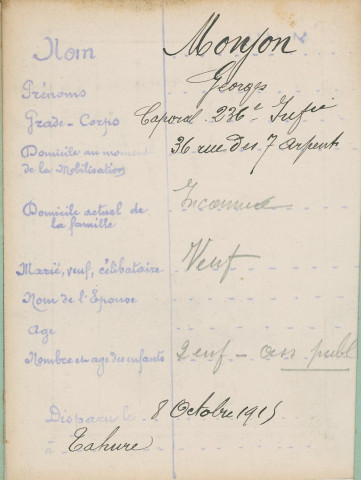 Nom Monjon
Prénoms Georges
Grade-Corps Caporal 236e Infie
Domicile au moment 36 rue des 7 Arpents
de la Mobilisation
Domicile actuel de Inconnu
la famille
Marié, veuf, célibataire Veuf
Nom de l'Épouse
Age
Nombre et age des enfants 2 enf - ass publ
Disparu le 8 Octobre 1915
à Tahure